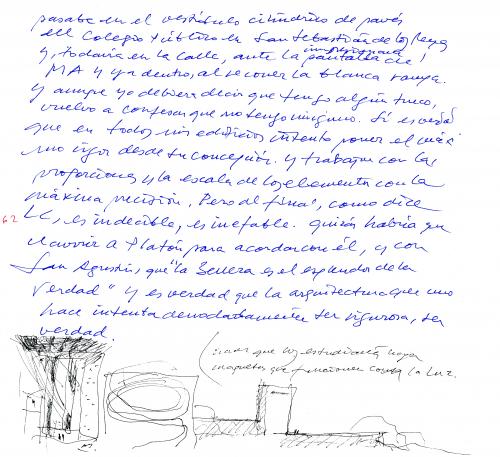 pasaba en el vestíbulo cilíndrico de pavés
del Colegio Público en San Sebastián de los Reyes
impresionante
y, todavía en la calle, ante la pantalla de
MA y ya dentro, al recorrer la blanca rampa.
Y aunque yo debiera decir que tengo algún truco,
vuelvo a confesar que no tengo ninguno. Sí es verdad
que en todos mis edificios intento poner el máxi
mo rigor desde su concepción. Y trabajar con las
proporciones y la escala de los elementos con la
máxima precisión. Pero al final, como dice
62
LC, es indecible, es inefable. Quizás habría que
recurrir a Platón para acordar con él, y con
San Agustín, que "la Belleza es el esplendor de la
Verdad" y es verdad que la arquitectura que uno
hace intenta denodadamente ser rigurosa, ser
verdad.
que los estudiantes hagan
maquetas que funcionen contra la Luz.